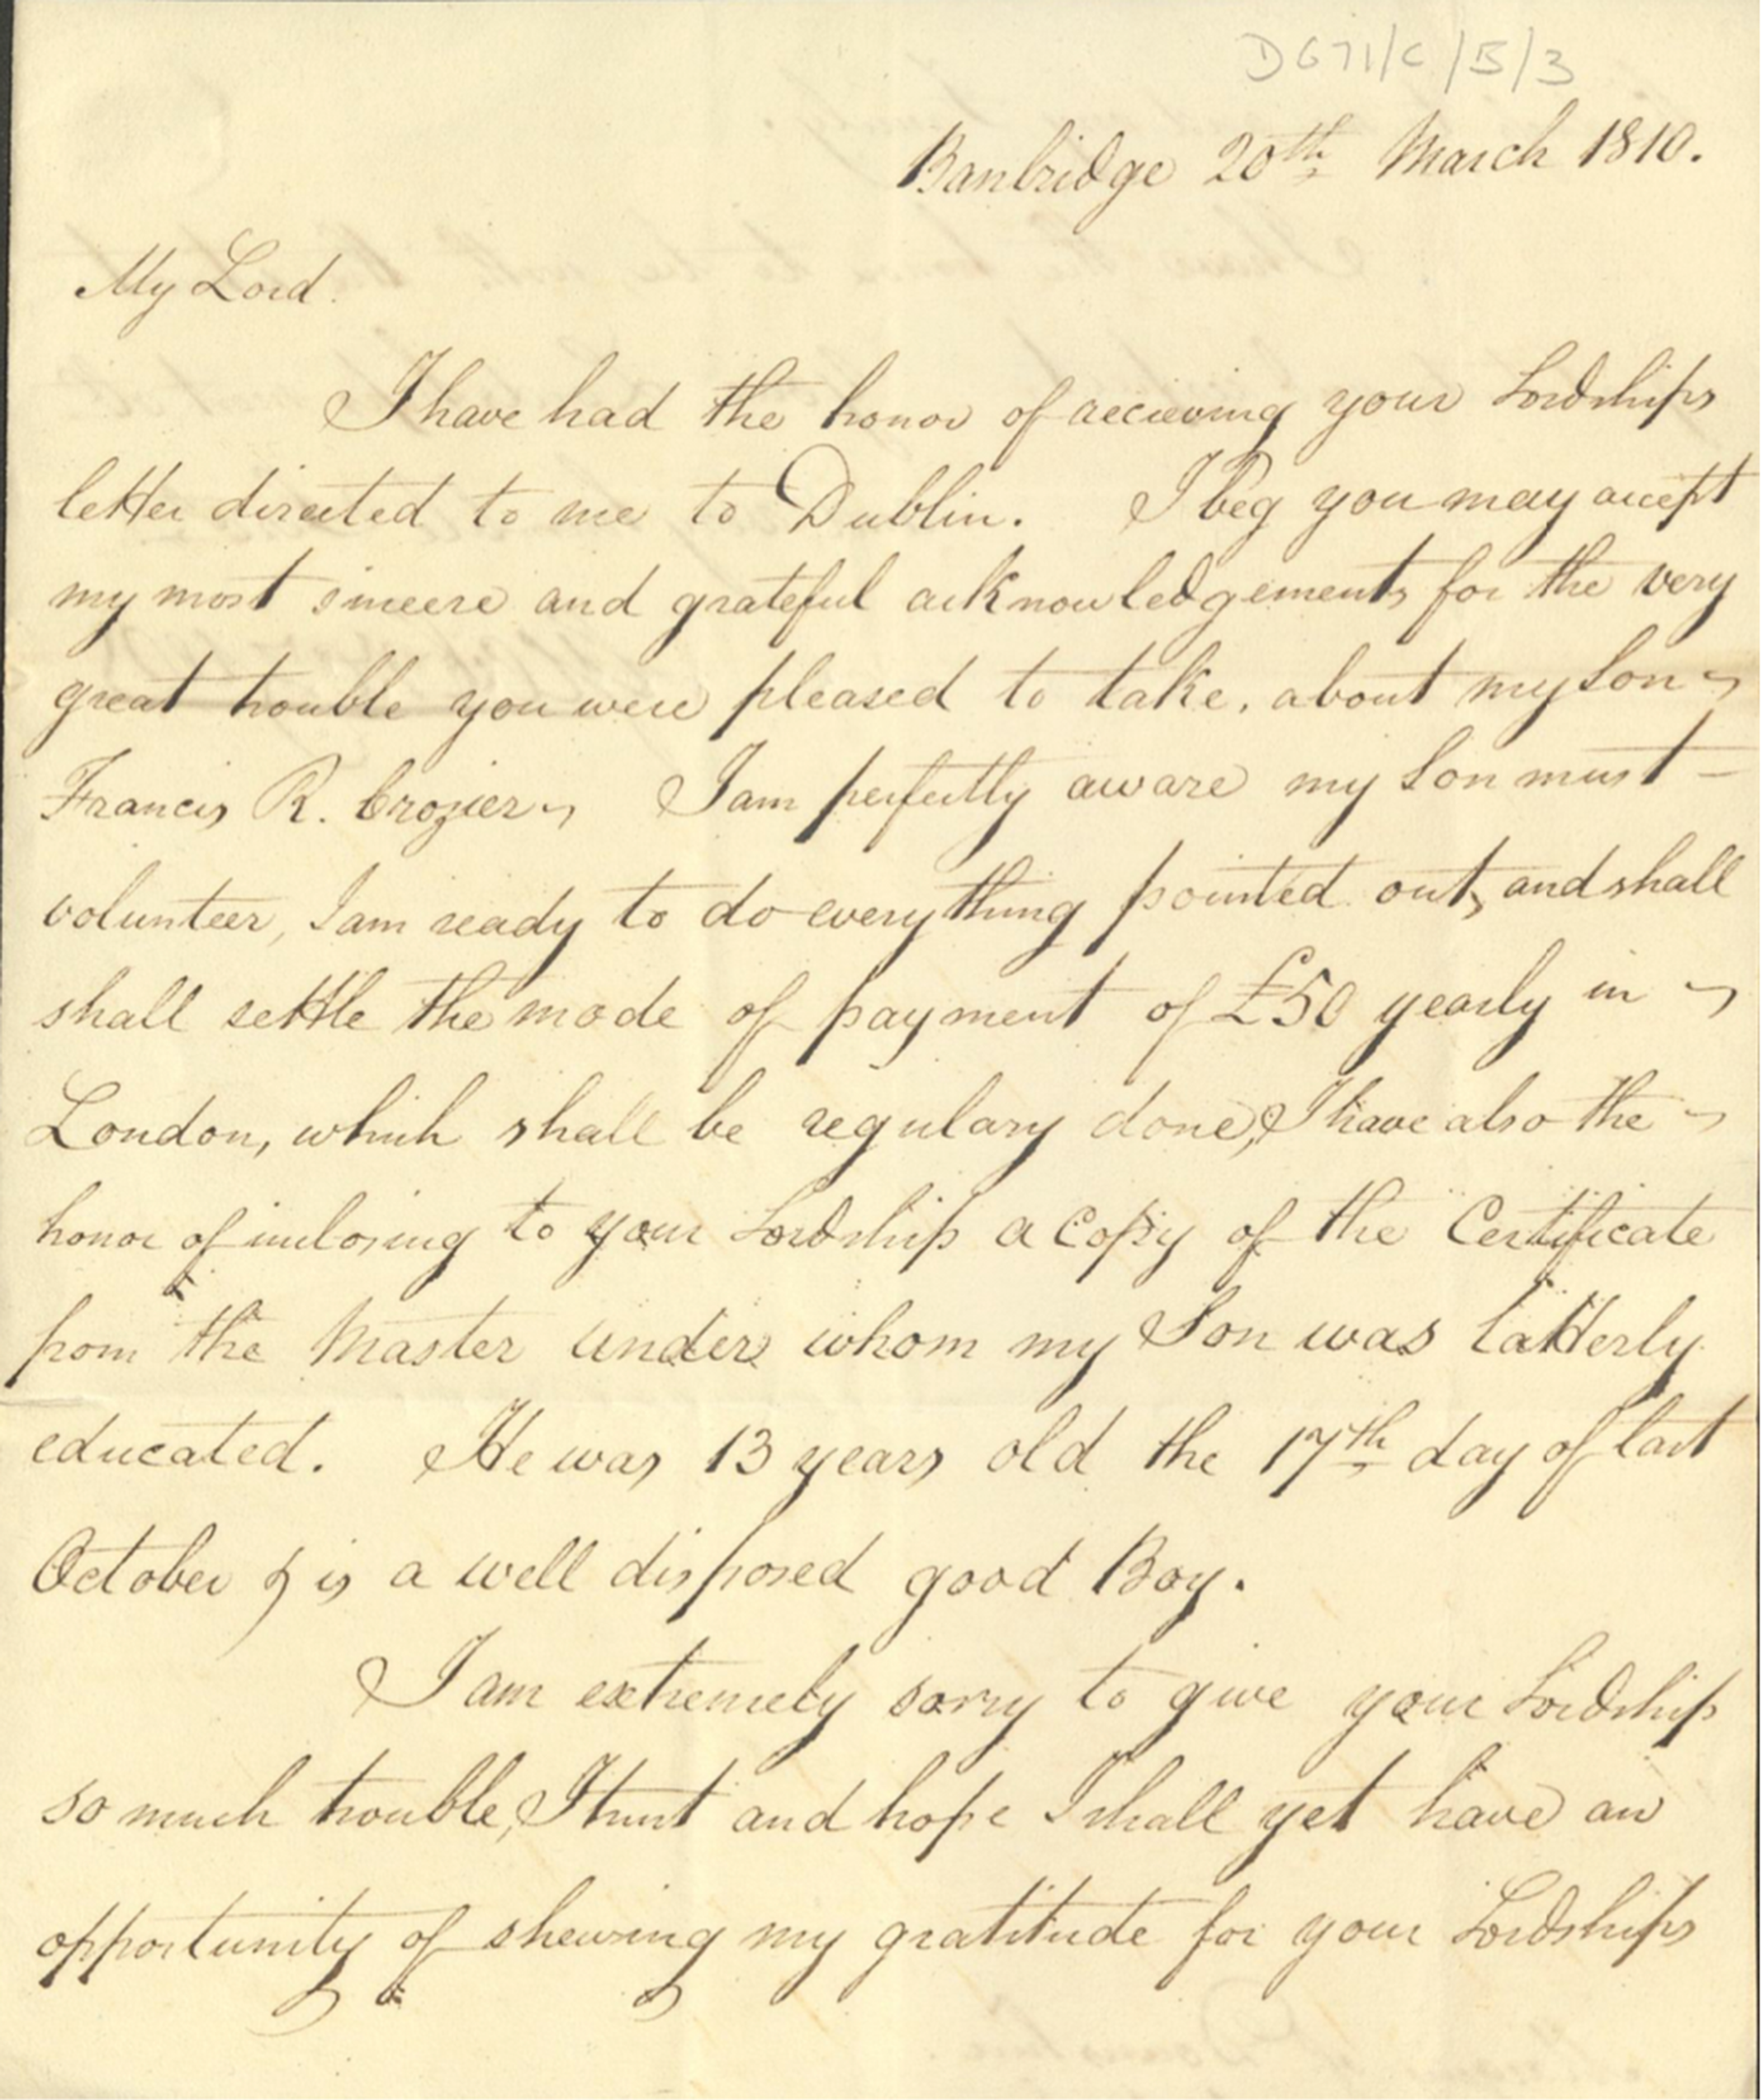 D671/C/15/3
Banbridge 20th March 1810.
My Lord.
I have had the honor of recieving your Lordships
letter directed to me to Dublin. I beg you may accept
my most sincere and grateful acknowledgements for the very
great trouble you were pleased to take, about my Son
Francis R. Crozier, I am perfectly aware my Son must -
volunteer, I am ready to do every thing pointed out, and shall
shall settle the mode of payment of £50 yearly in
London, which shall be regulary done, I have also the
honor of inclosing to your Lordship a Copy of the Certificate
from the Master under whom my Son was latterly
educated. He was 13 years old the 17th day of last
October & is a well disposed good Boy.
I am extremely sorry to give your Lordship
so much trouble, I trust and hope I shall yet have an
opportunity of shewing my gratitude for your Lordships